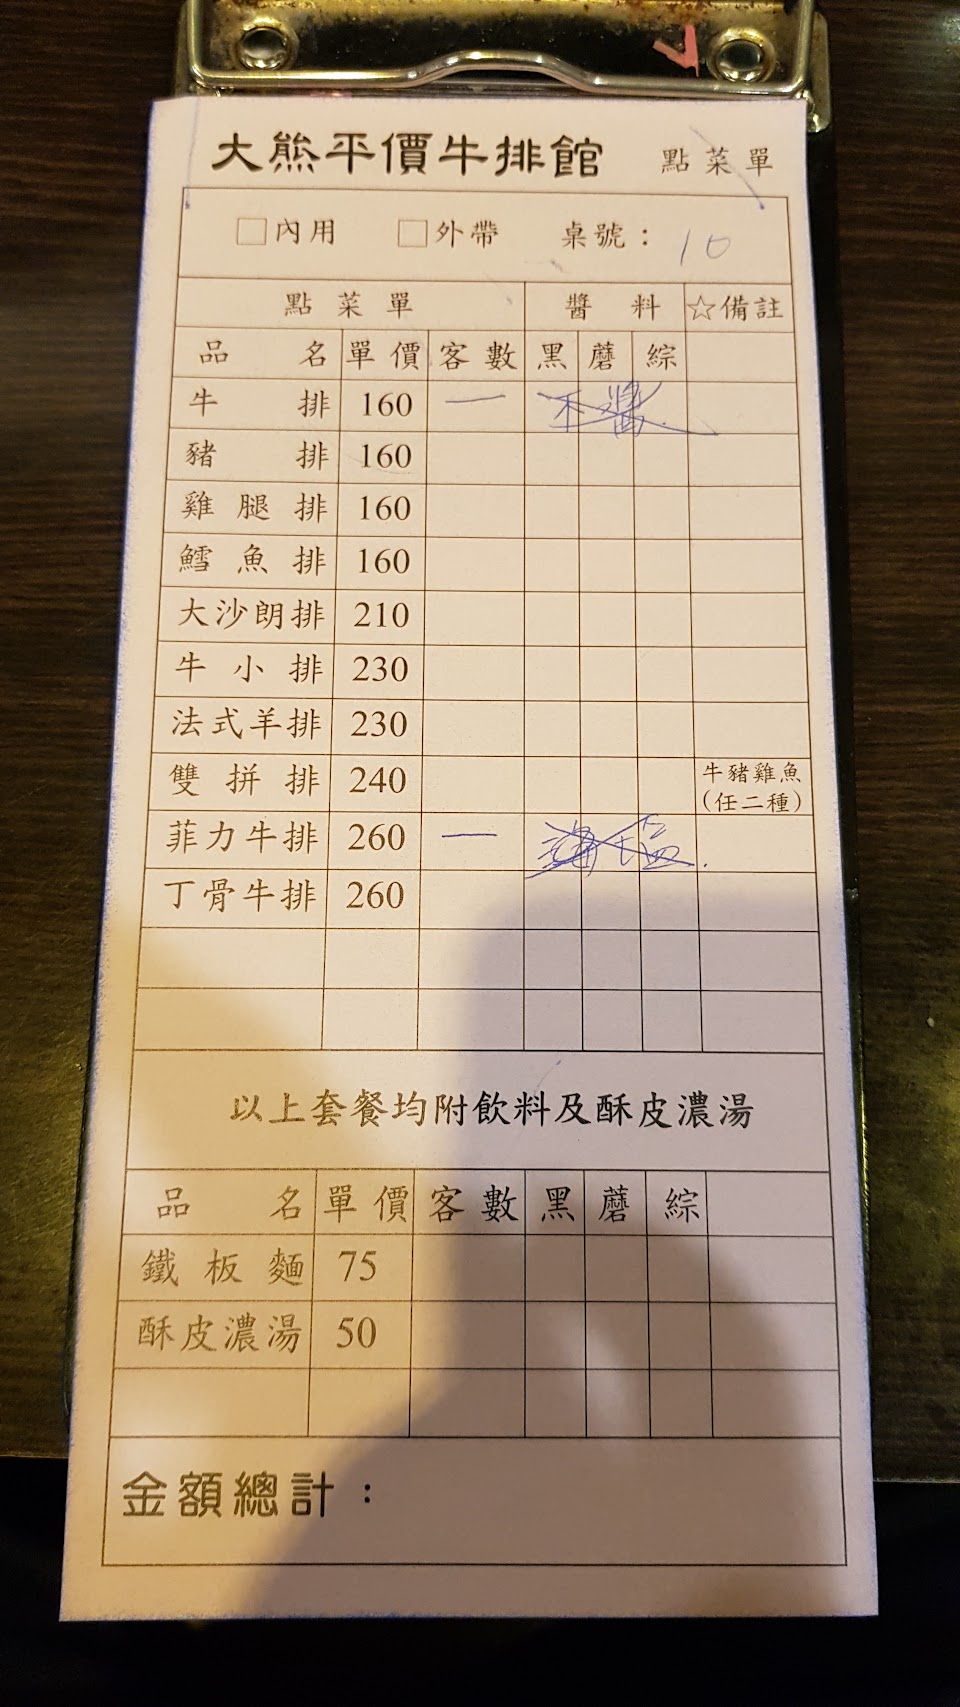 大熊平價牛排館 點菜單
內用 外帶 桌號： 10
點菜單 醬料 ☆備註
品名 單價 客數 黑 蘑 綜
牛排 160 一 不醬
豬排 160
雞腿排 160
鱈魚排 160
大沙朗排 210
牛小排 230
法式羊排 230
雙拼排 240 牛豬雞魚
(任二種)
菲力牛排 260 一
丁骨牛排 260
以上套餐均附飲料及酥皮濃湯
品名 單價 客數 黑 蘑 綜
鐵板麵 75
酥皮濃湯 50
金額總計：